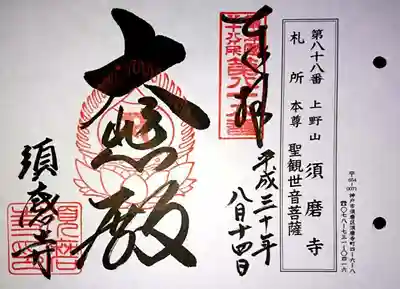 第八十八番 上野山 須磨寺
札所 本尊 聖観世音菩薩
〒654-0071 神戸市須磨区須磨寺町四-六-八
☎〇七八-七三一-〇四一六
奉拝
平成三十年
八月十四日
大悲殿
須磨寺